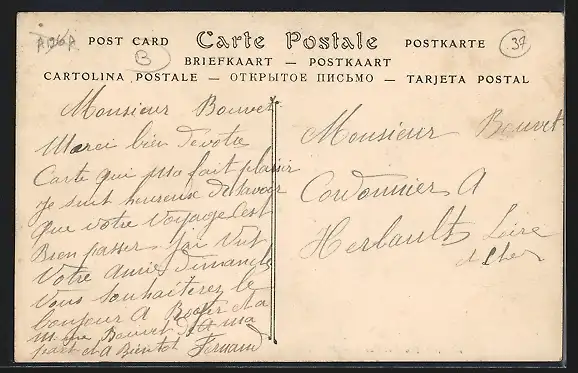 POST CARD Carte Postale POSTKARTE 37
B
BRIEFKAART — POSTKAART
CARTOLINA POSTALE — ОТКРЫТОЕ ПИСЬМО — TARJETA POSTAL
Monsieur Bouvet
Merci bien de votre
Carte qui ma fait plaisir
je suit heureuse de savoir
que votre voyage cest
Bien passer jai vut
votre amie dimanche
vous souhaiterez le
bonjour A et a
Mme Bouvet de ma
part et A Bientot Fernand
Monsieur Bouvet
Cordonnier A
Herbault Loire
et Cher